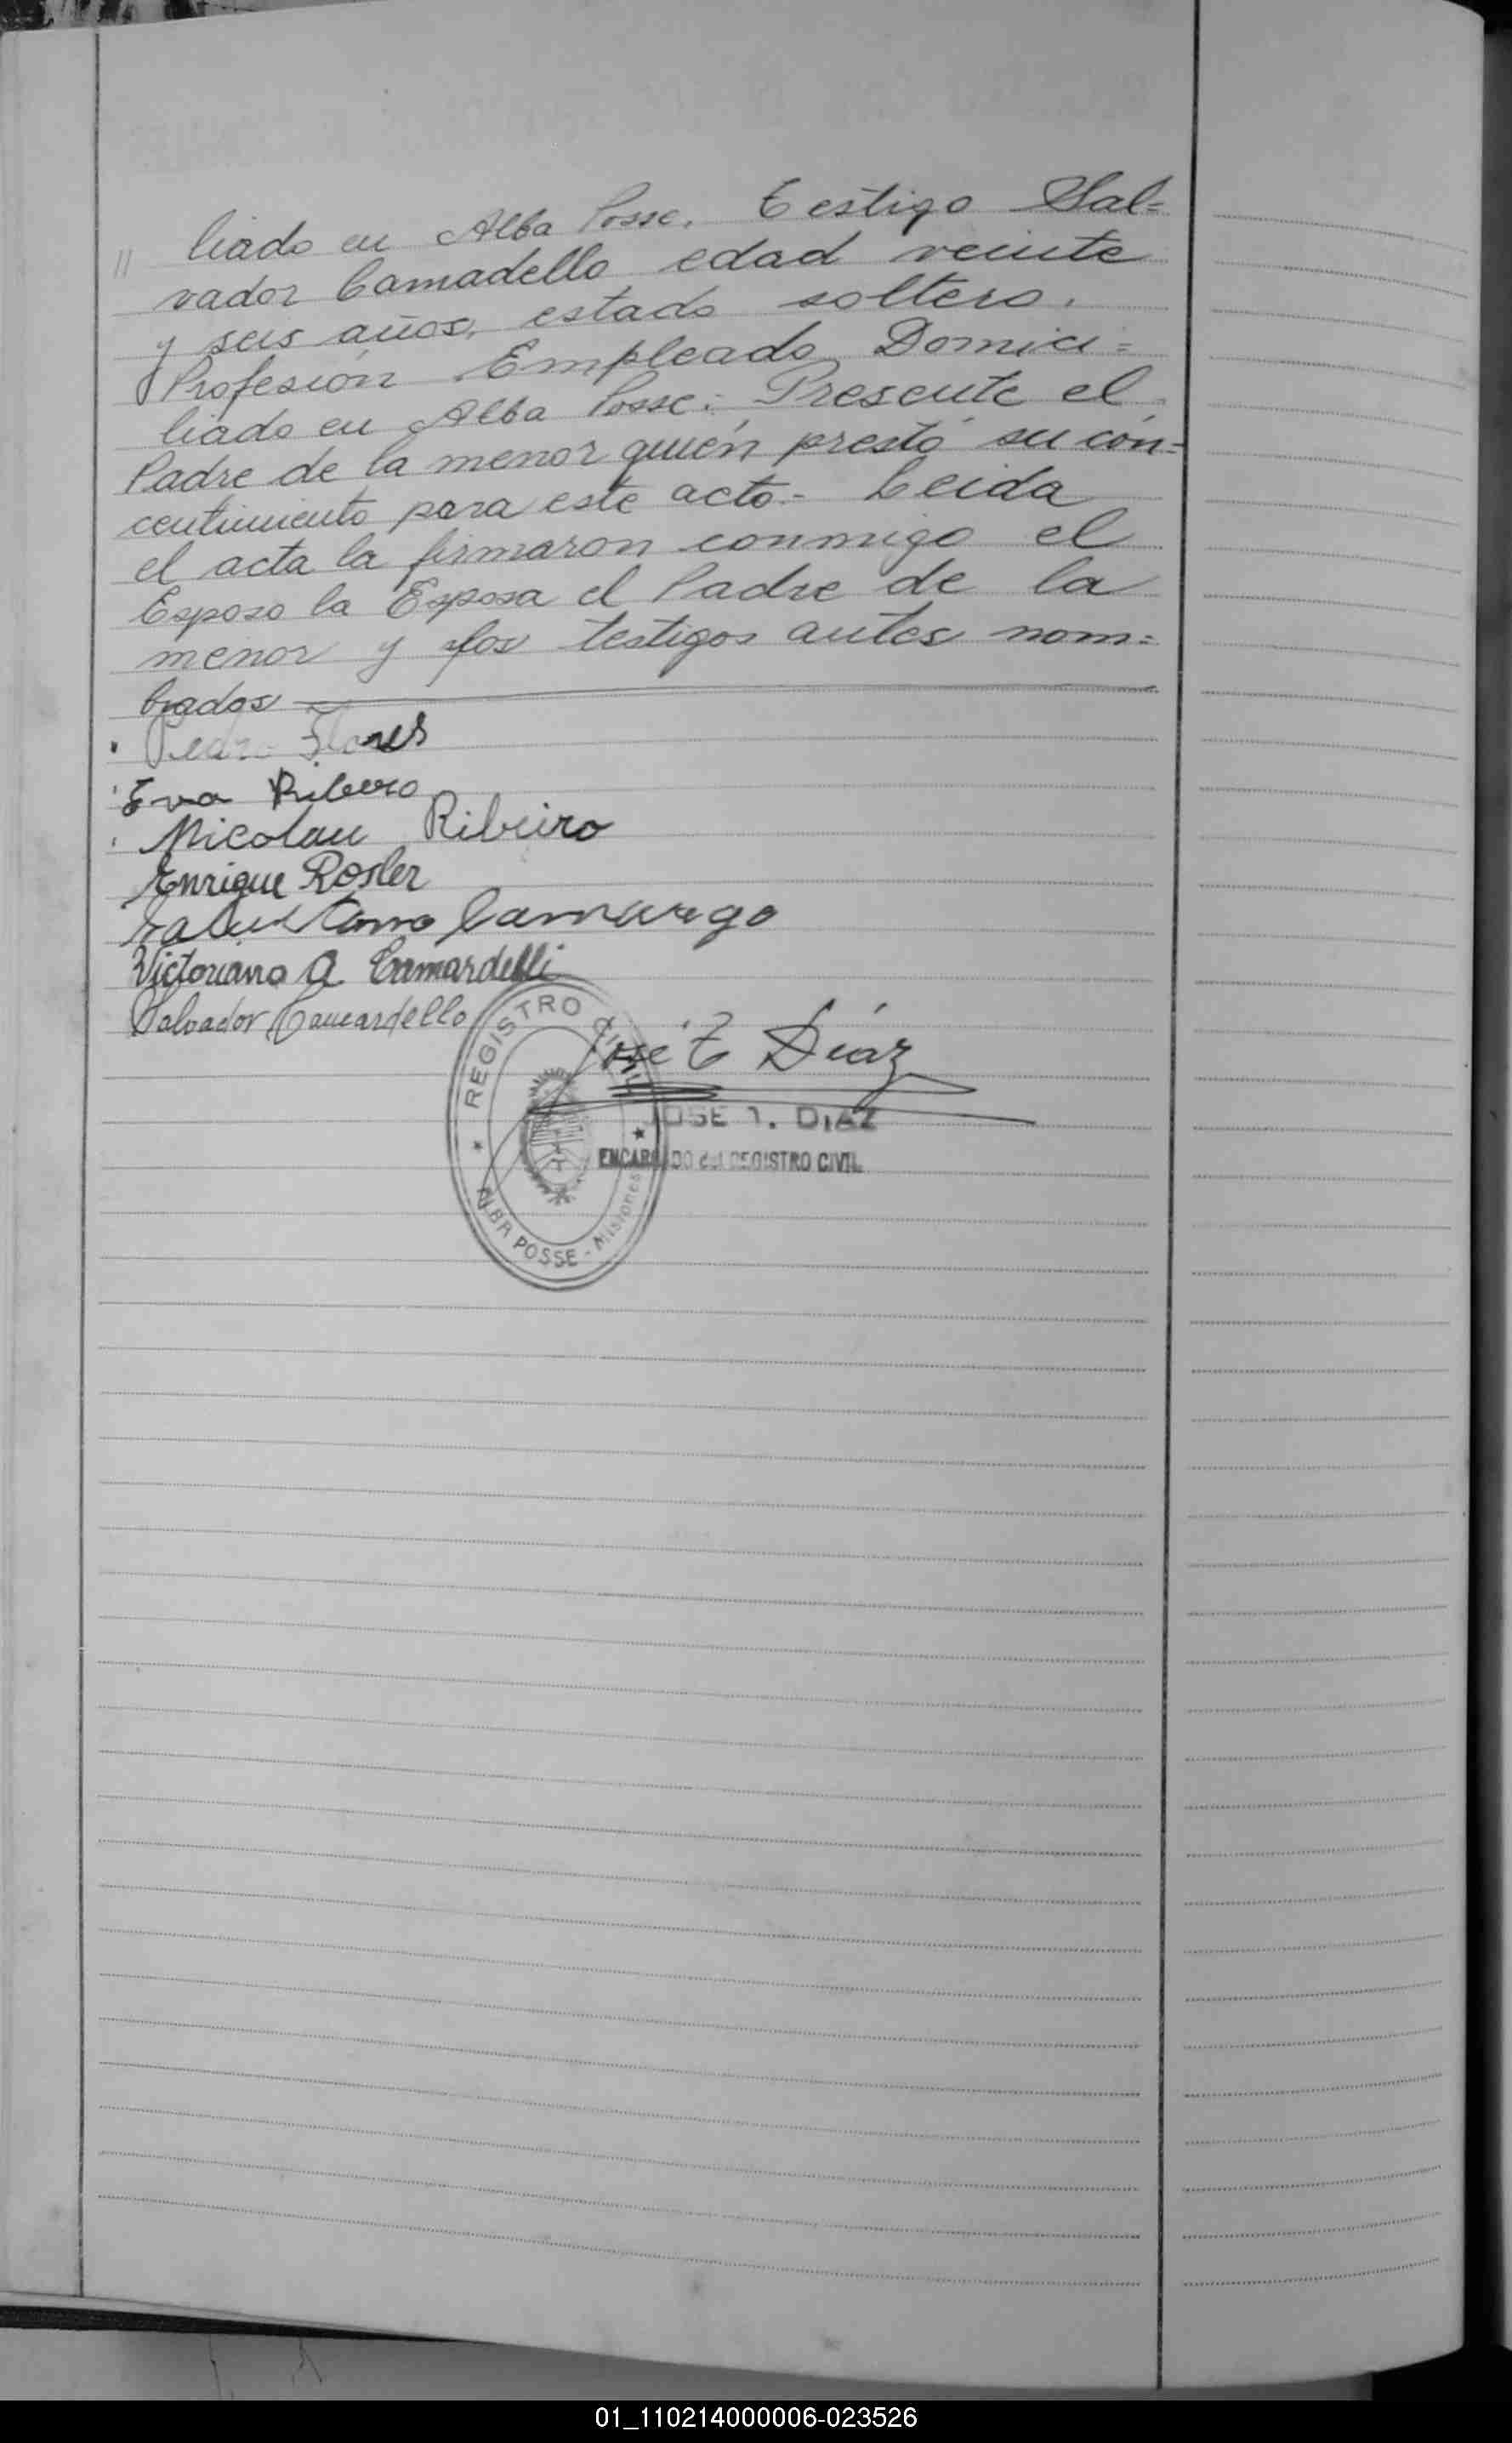 // liado en Alba Posse. Testigo Sal=
vador Camadello edad veinte
y seis años, estado soltero.
Profesión Empleado, Domici=
liado en Alba Posse: Presente el
Padre de la menor quién prestó su con=
centimiento para este acto.- Leida
el acta la firmaron conmigo el
Esposo la Esposa el Padre de la
menor y los testigos antes nom=
brados
Pedro Flores
Eva Ribeiro
Nicolau Ribeiro
Enrique Rosler
Salustiano Camargo
Victoriano A. Camardelli
Salvador Camardello
José T Díaz
JOSE T. DIAZ
ENCARGADO del REGISTRO CIVIL
REGISTRO CIVIL
ALBA POSSE - Misiones
01_110214000006-023526